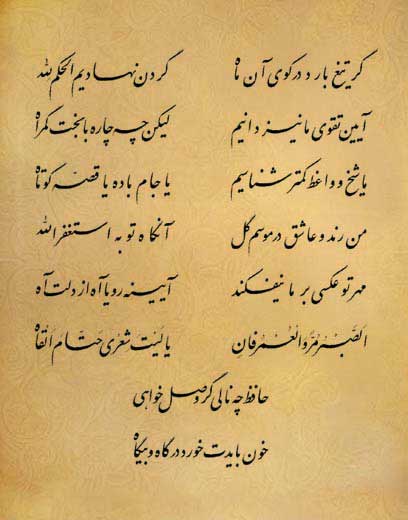 گر تیغ بارد در کوی آن ماه گردن نهادیم الحکم لله
آیین تقوی ما نیز دانیم لیکن چه چاره با بخت گمراه
ما شیخ و واعظ کمتر شناسیم یا جام باده یا قصه کوتاه
من رند و عاشق در موسم گل آنگاه توبه استغفرالله
مهر تو عکسی بر ما نیفکند آیینه رویا آه از دلت آه
اَلصَّبْرُ مُرٌّ وَالْعُمْرُ فانِ یا لَیْتَ شِعْری حَتّامَ اَلْقاهُ
حافظ چه نالی گر وصل خواهی
خون بایدت خورد در گاه و بیگاه